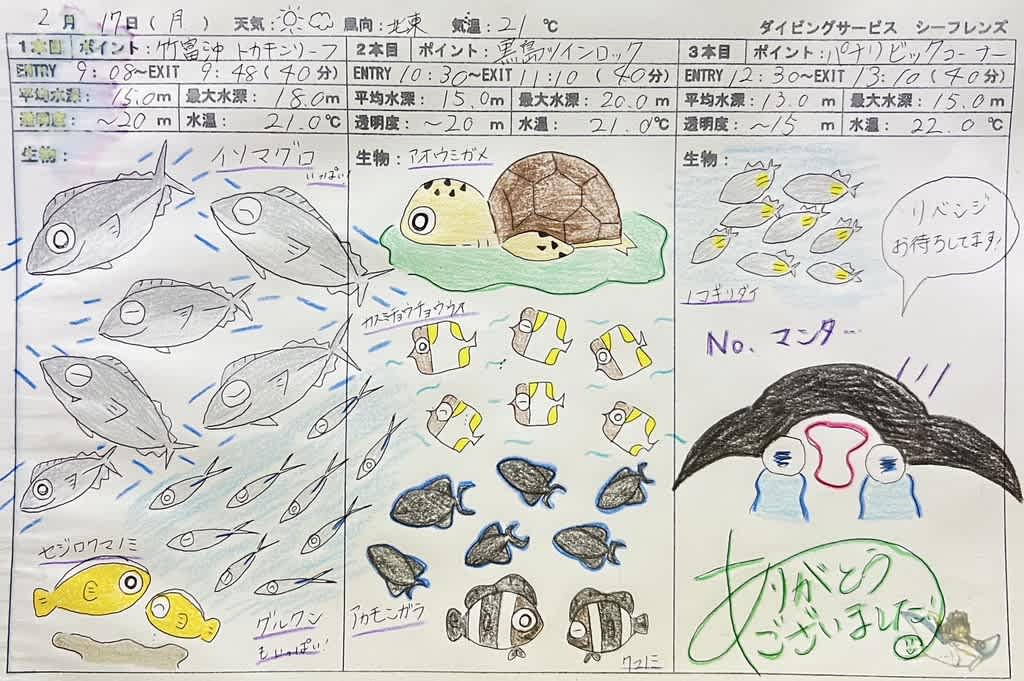 2月 17日(月) 天気: 風向: 北東 気温: 21℃ ダイビングサービス シーフレンズ
1本目 ポイント: 竹富沖 トカキンリーフ
ENTRY 9:08～EXIT 9:48(40分)
平均水深: 15.0m 最大水深: 18.0m
透明度: ～20m 水温: 21.0℃
生物:
イソマグロ
いっぱい!
セジロクマノミ
グルクン
もいっぱい!
2本目 ポイント: 黒島ツインロック
ENTRY 10:30～EXIT 11:10(40分)
平均水深: 15.0m 最大水深: 20.0m
透明度: ～20m 水温: 21.0℃
生物: アオウミガメ
カスミチョウチョウウオ
アカモンガラ
クマノミ
3本目 ポイント: パナリビックコーナー
ENTRY 12:30～EXIT 13:10(40分)
平均水深: 13.0m 最大水深: 15.0m
透明度: ～15m 水温: 22.0℃
生物:
リベンジ
お待ちしてます!
ノコギリダイ
No. マンタ…
ありがとう
ございました!